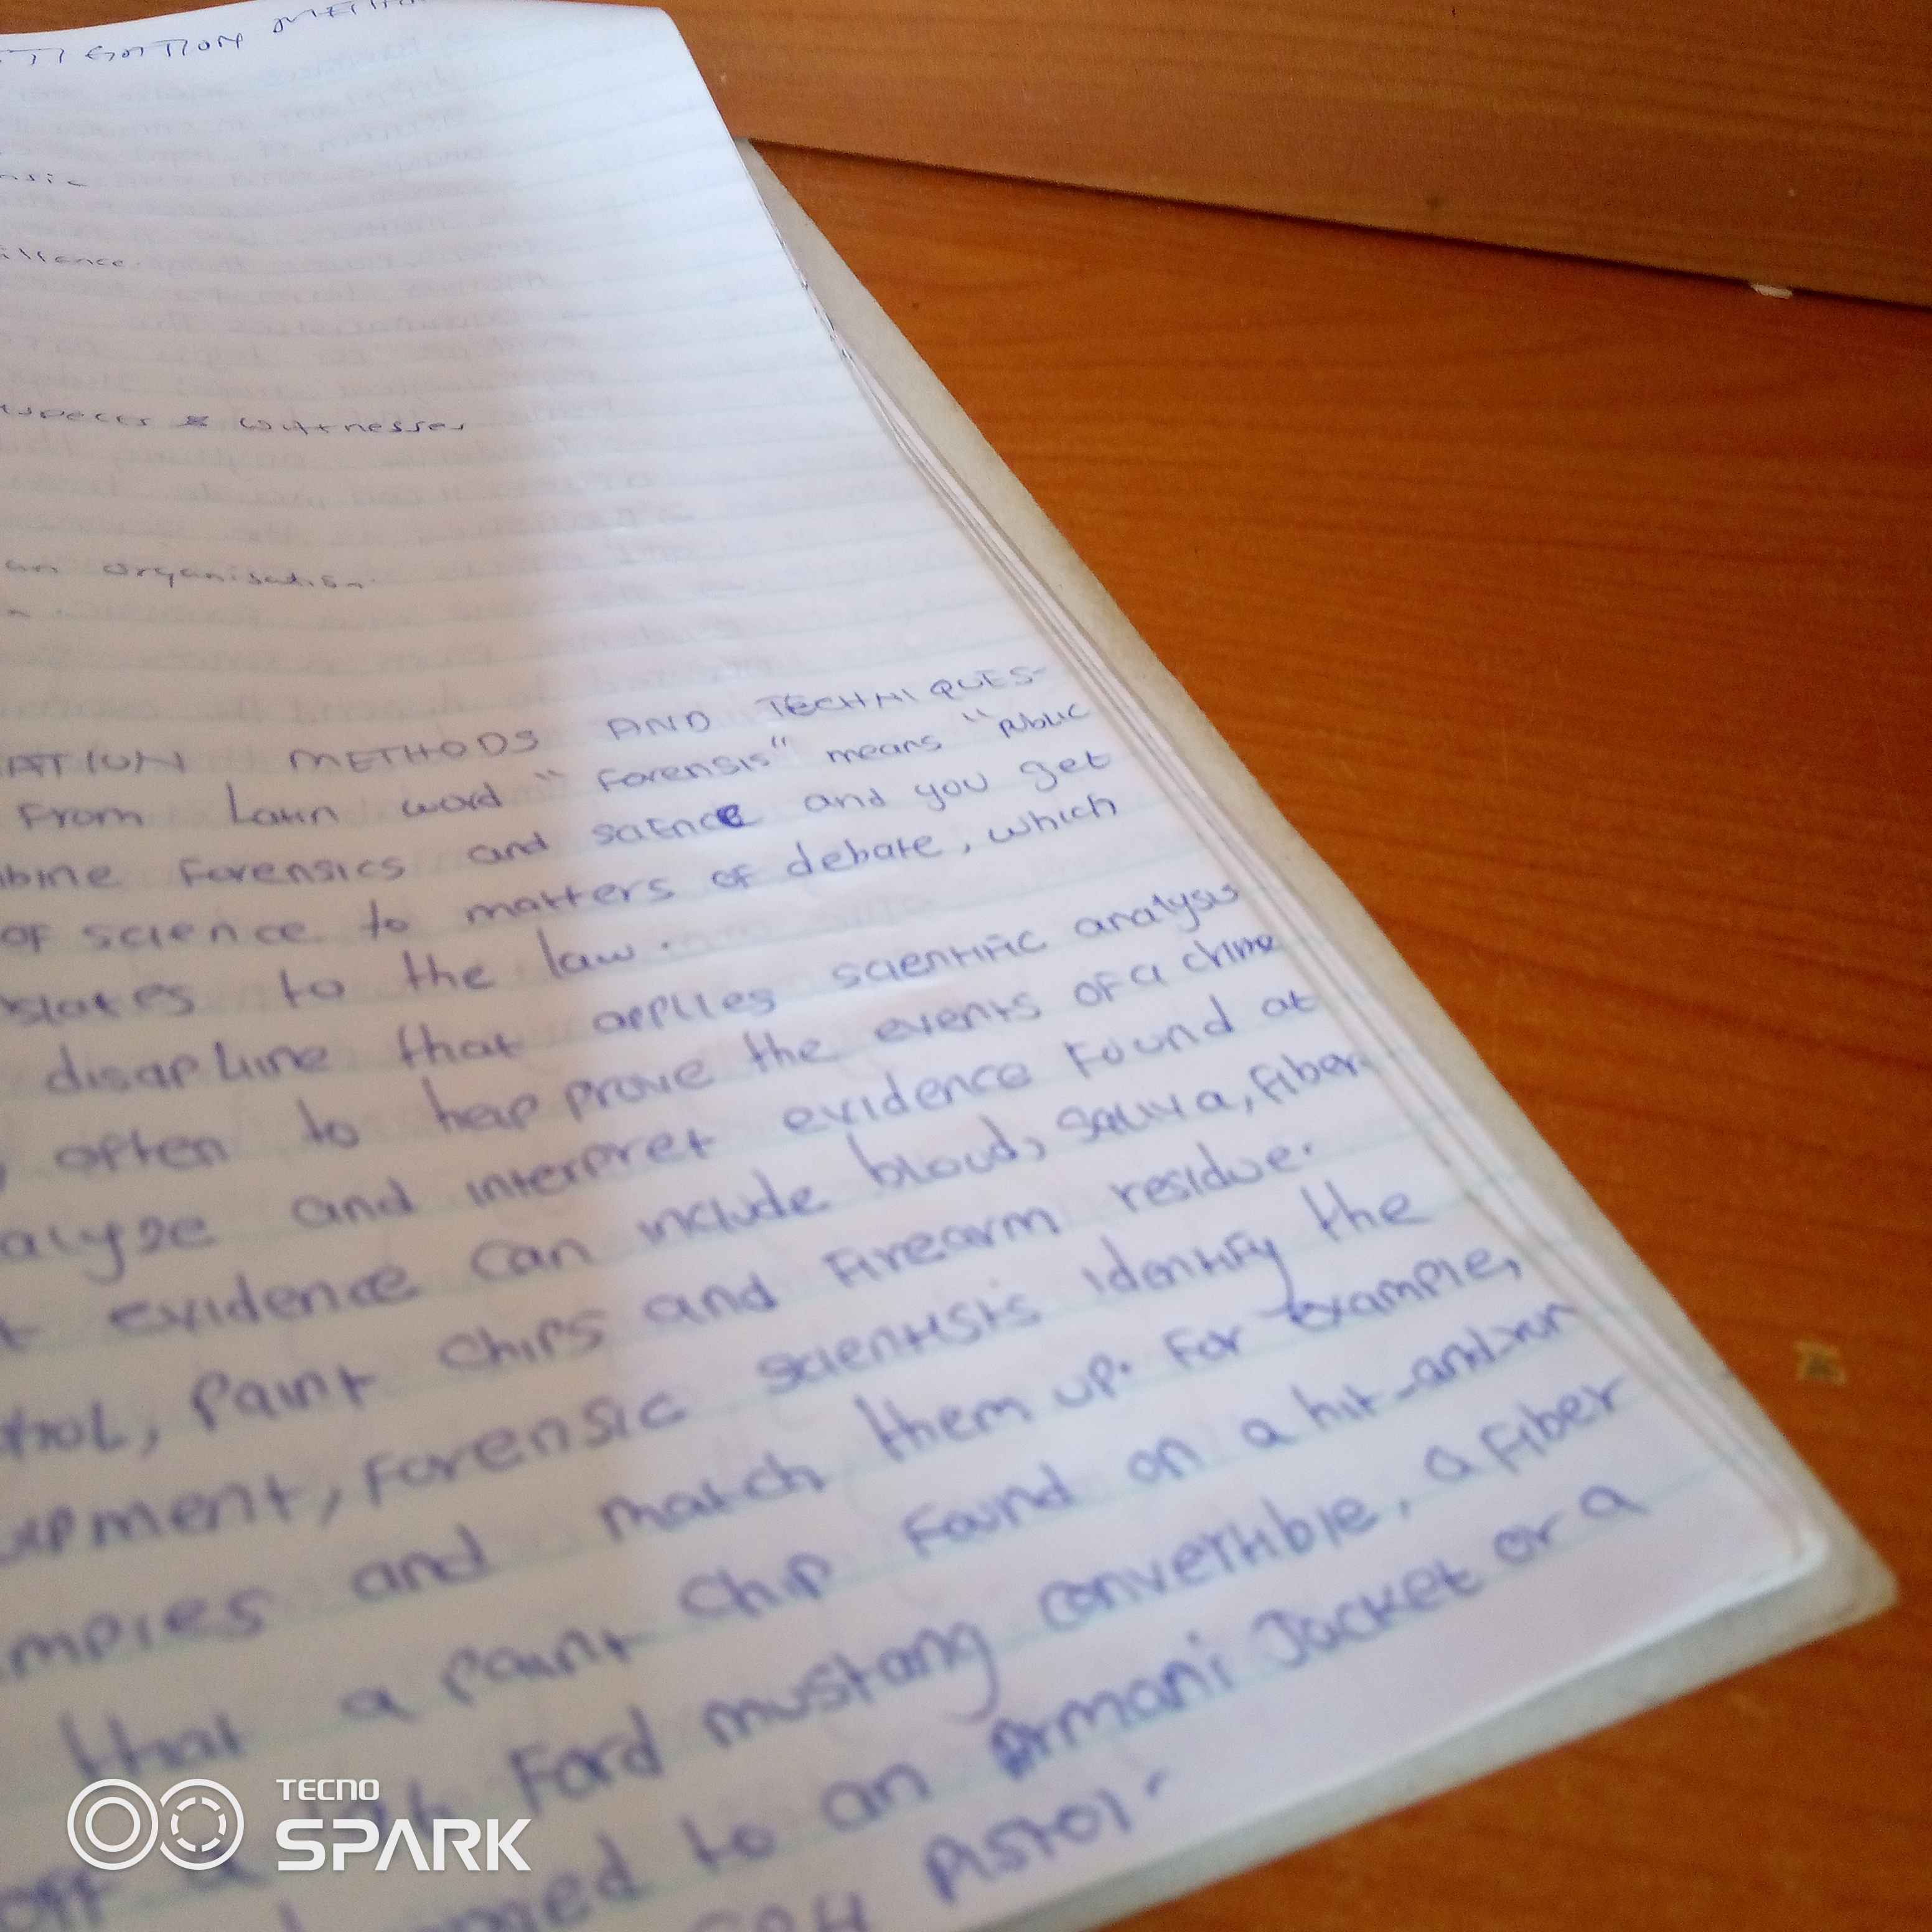 METH
nsic
illance
uspects & wittnesses
an organisation
ATION METHODS AND TECHNIQUES-
From Latin word "Forensis" means "public
bine Forensics and science and you get
of science to matters of debate, which
slates to the law.
discipline that applies scientific analysis
often to help prove the events of a crime
alyze and interpret evidence found at
evidence can include blood, saliva, fiber
trol, paint chips and firearm residue.
upment, forensic scientists identify the
mples and match them up. For example,
that a paint chip found on a hit-and-run
off a Ford mustang convertible, a fiber
to an Armani Jacket or a
Pistol.
TECNO
SPARK